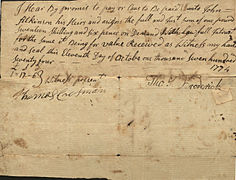 I Hear By promes to pay or Cause to Be paid unto John
Atkinson his Heirs and asigns the full and just sum of one pound
Seventeen Shilling and six pence on Demand With Lawfull
for the same it Being for value Received as Witness my hand
and seal this Eleventh Day of October one thousand Seven hundred
Seventy four 1774
1-17-6
Witness present
Thomas Tho